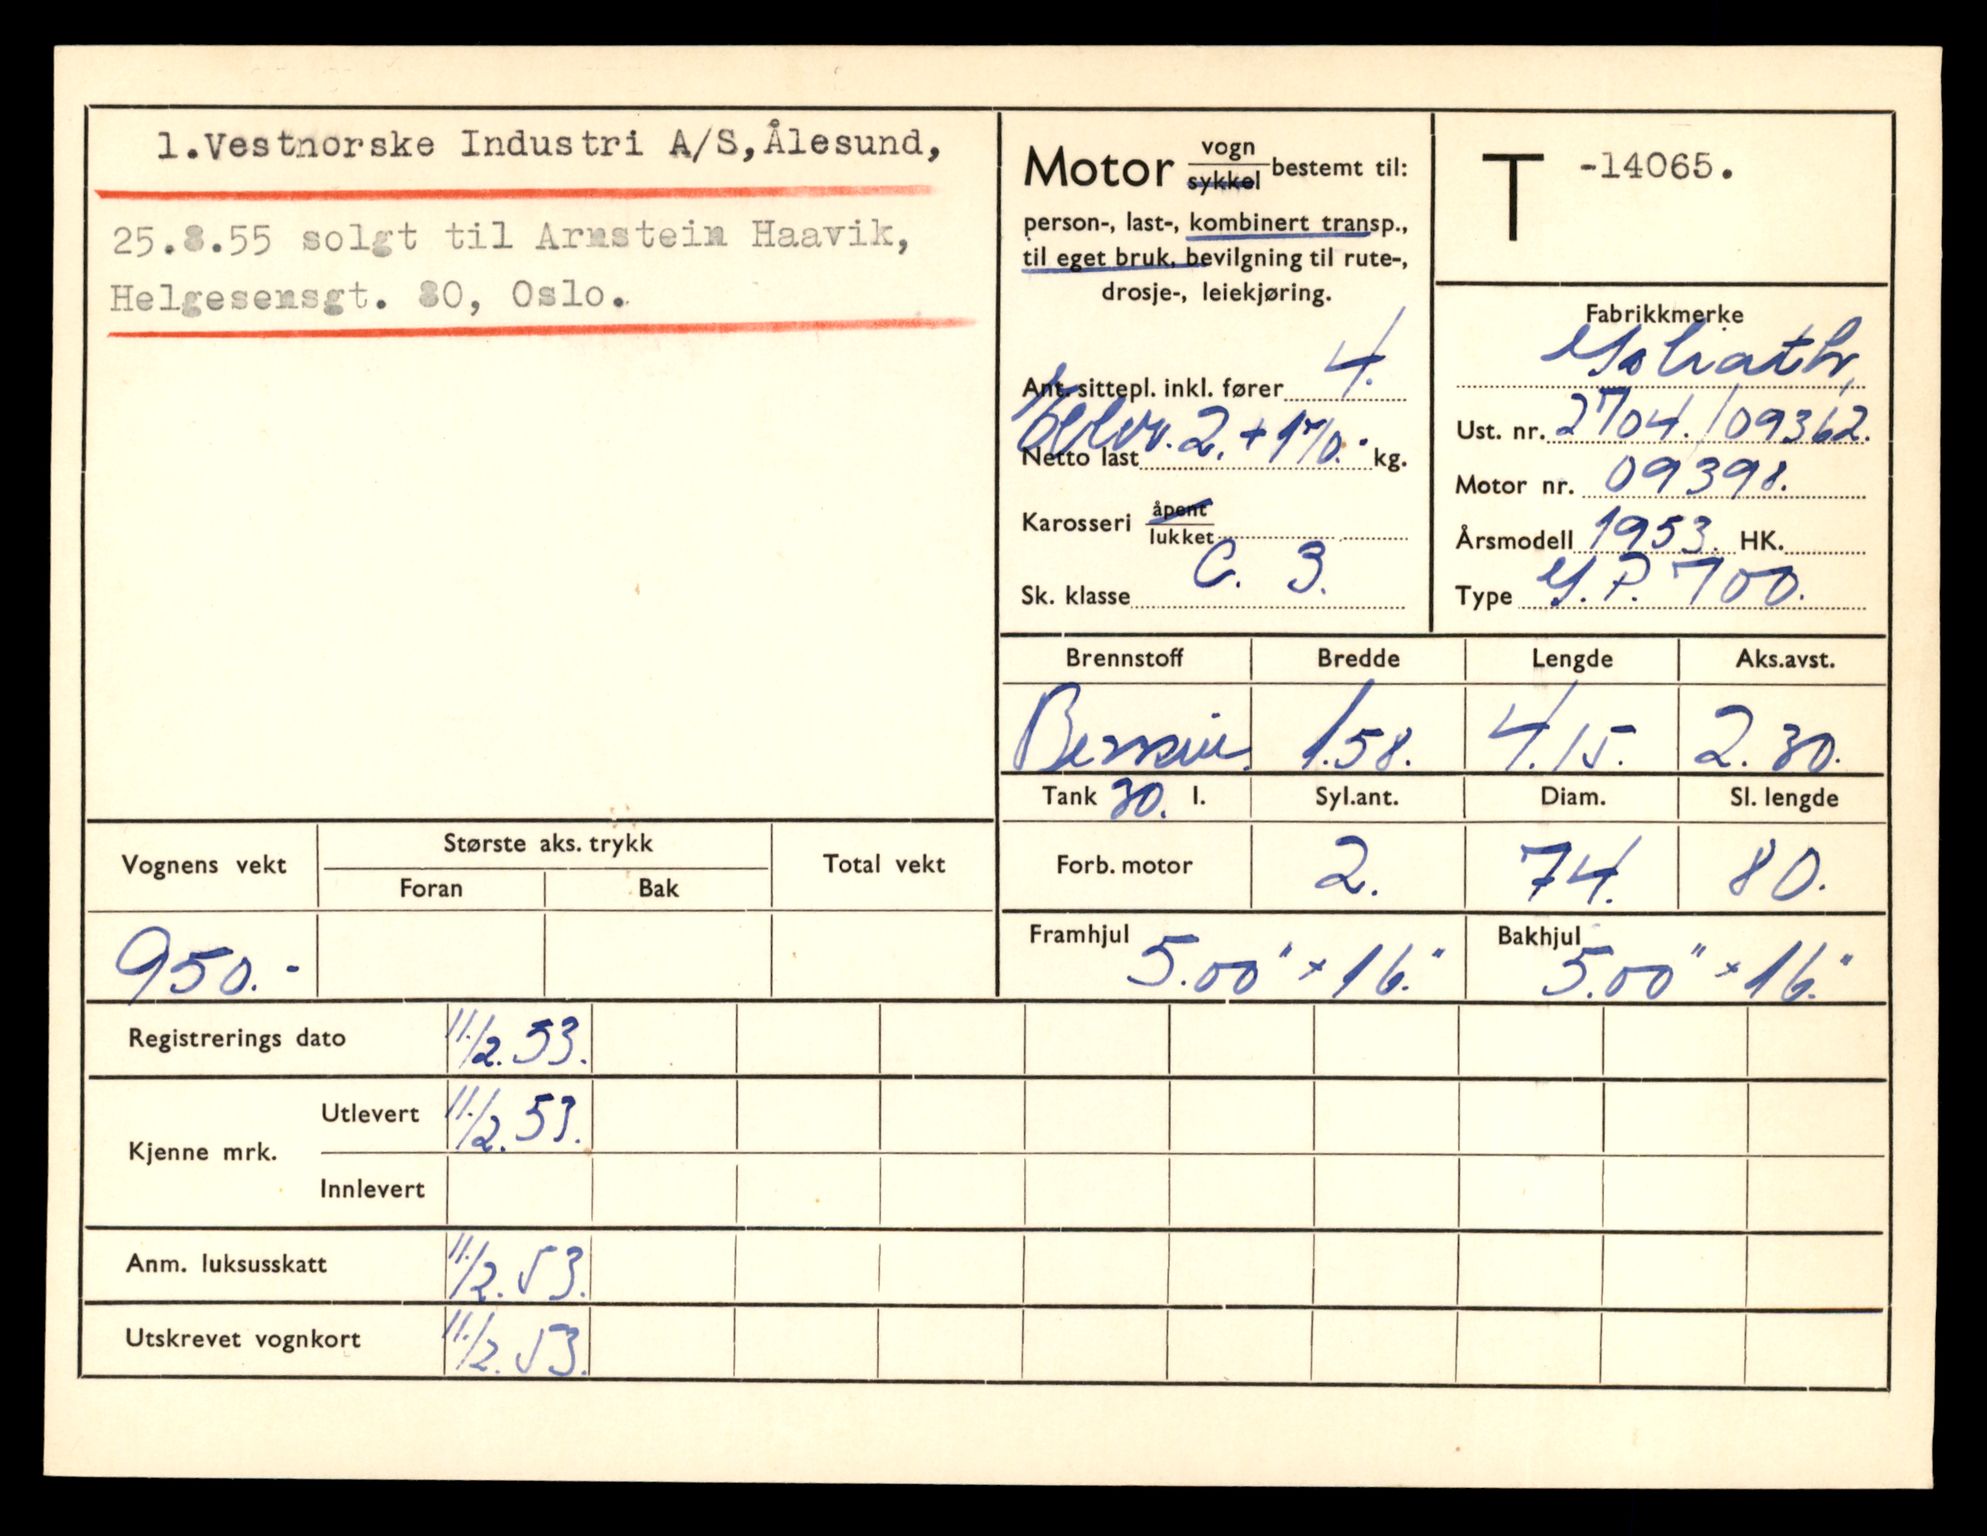 1.Vestnorske Industri A/S,Ålesund,
25.8.55 solgt til Arnstein Haavik,
Helgesensgt. 80, Oslo.
Motor vogn/sykkel bestemt til:
person-, last-, kombinert transp.,
til eget bruk, bevilgning til rute-,
drosje-, leiekjøring.
Ant. sittepl. inkl. fører 4.
Netto last 2.+170. kg.
Karosseri åpent/lukket
Sk. klasse C. 3.
T -14065.
Fabrikkmerke
Goliath
Ust. nr. 2704./09362.
Motor nr. 09398.
Årsmodell 1953. HK.
Type G.P. 700.
Brennstoff Bredde Lengde Aks.avst.
Bensin. 1.58. 4.15. 2.30.
Tank 30. l. Syl.ant. Diam. Sl. lengde
Forb. motor 2. 74. 80.
Framhjul 5.00" x 16." Bakhjul 5.00" x 16."
Vognens vekt Største aks. trykk Total vekt
Foran Bak
950.-
Registrerings dato 11./2.53.
Kjenne mrk. Utlevert 11./2.53.
Innlevert
Anm. luksusskatt 11./2.53.
Utskrevet vognkort 11./2.53.